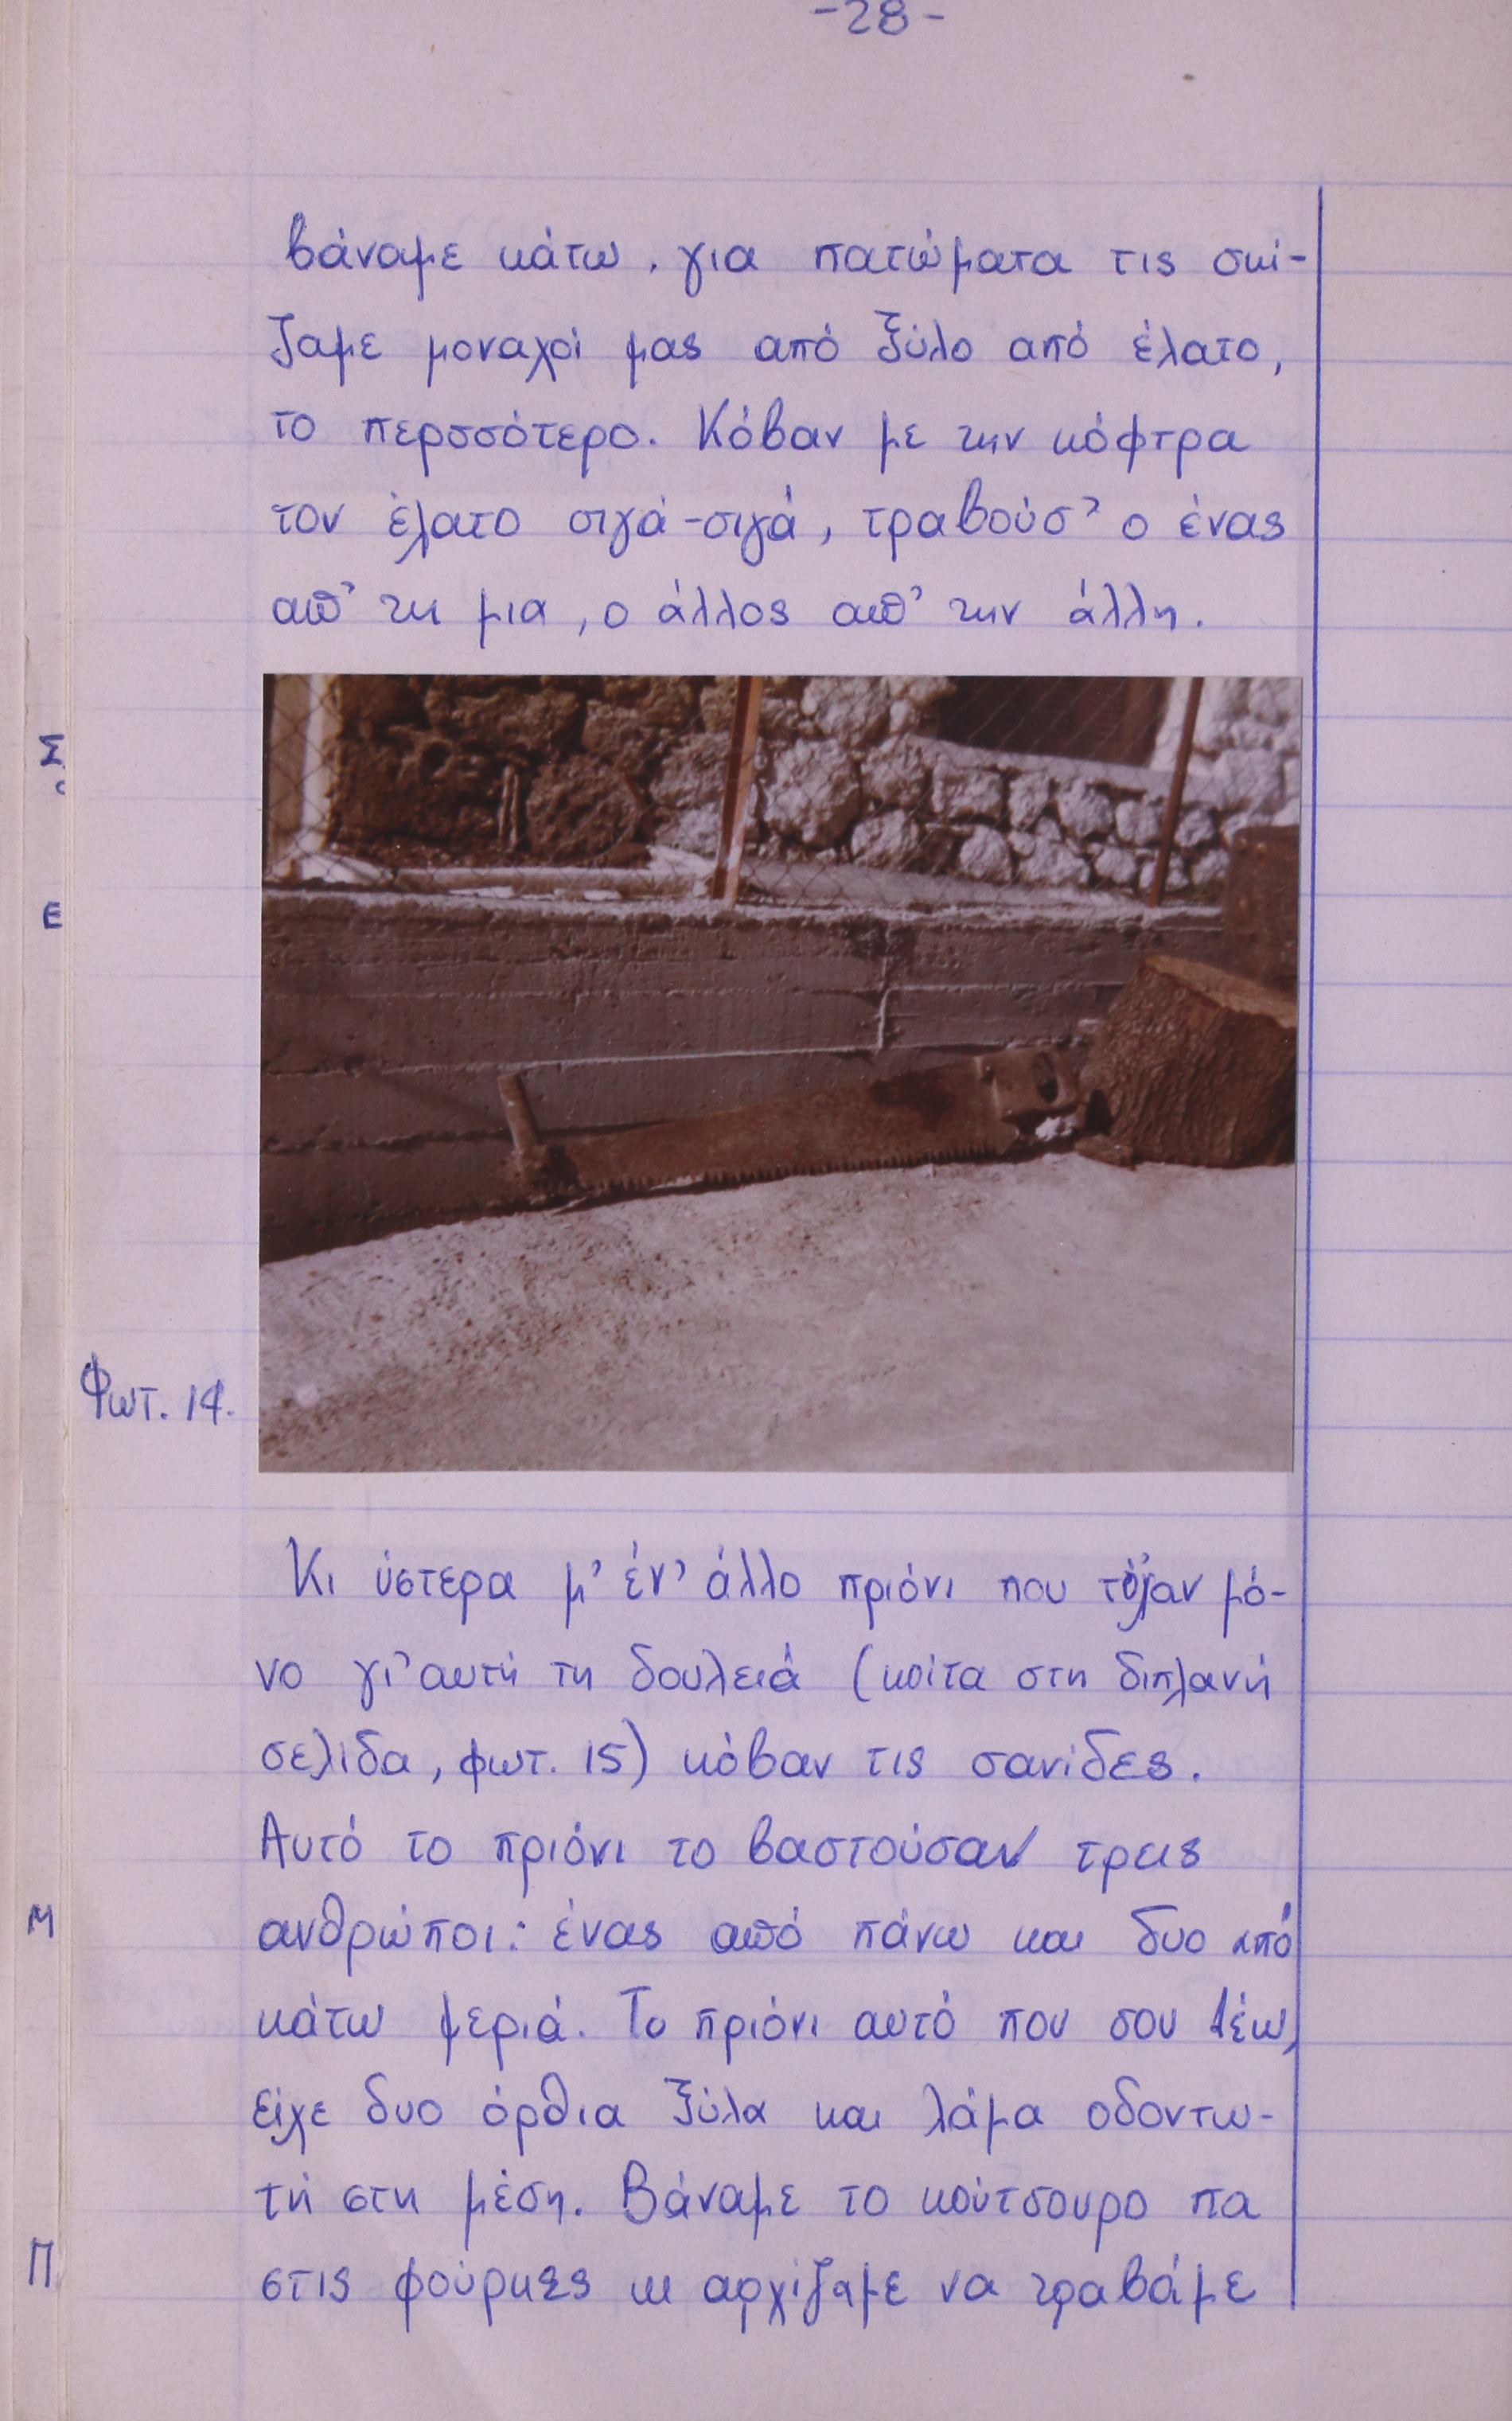 -28-
βάναμε κάτω, για πατώματα τις σκί-
ζαμε μοναχοί μας από ξύλο από έλατο,
το περσσότερο. Κόβαν με την κόφτρα
τον έλατο σιγά-σιγά, τραβούσ' ο ένας
απ' τη μια, ο άλλος απ' την άλλη.
Φωτ. 14.
Κι ύστερα μ' έν' άλλο πριόνι που τό'χαν μό-
νο γι' αυτή τη δουλειά (κοίτα στη διπλανή
σελίδα, φωτ. 15) κόβαν τις σανίδες.
Αυτό το πριόνι το βαστούσαν τρεις
ανθρώποι: ένας από πάνω και δυο από
κάτω μεριά. Το πριόνι αυτό που σου λέω,
είχε δυο όρθια ξύλα και λάμα οδοντω-
τή στη μέση. Βάναμε το κούτσουρο πα
στις φούρκες κι αρχίζαμε να τραβάμε
Σ
Ε
Μ
Π